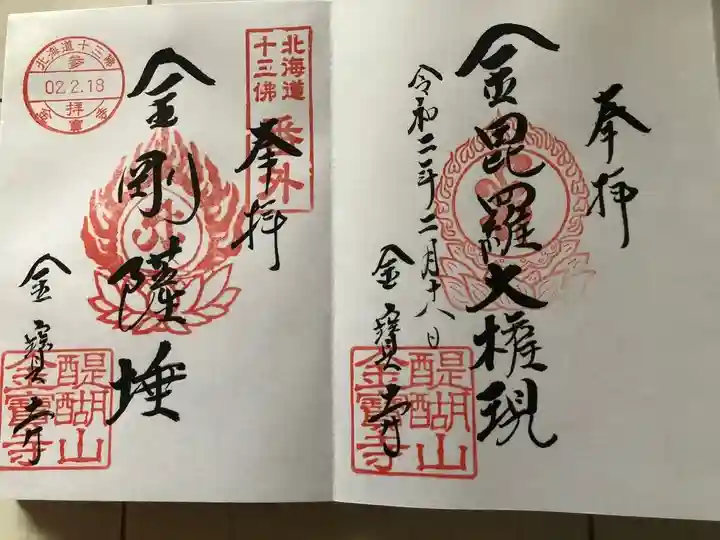 奉拝
金毘羅大権現
令和二年二月十八日
金寳寺
醍醐山
金寳寺
北海道
十三佛
番外
奉拝
金剛薩埵
金寳寺
醍醐山
金寳寺
北海道十三佛
參
02.2.18
拝
金寳寺